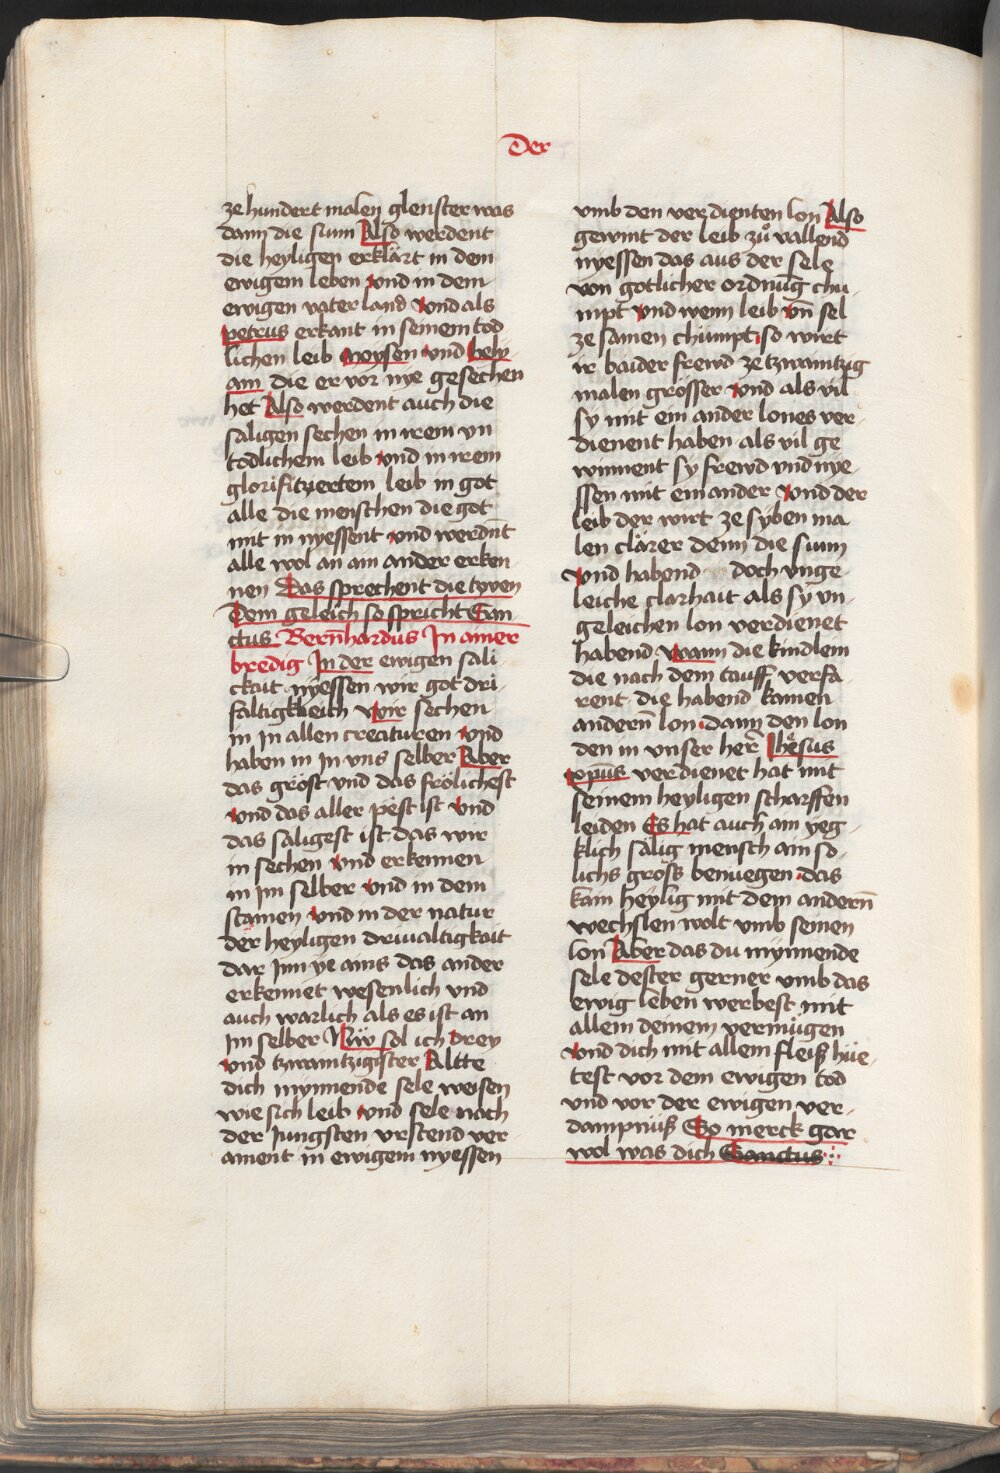 Der
ze hundert malen glenster was
dann die sunn Also werdent
die heyligen erklärt in dem
ewigem leben vnd in dem
ewigen vater land vnd als
petrus erkant in seinem tod
lichen leib moysen vnd hely
am die er vor nye gesechen
het Also werdent auch die
saligen sechen in irem vn
todlichem leib vnd in irem
glorifitzertem leib in got
alle die menschen die got
mit in nyessent vnd werdnt
alle wol an ain ander erken
nen Das sprechent die tzwen
Dem geleich so spricht San
ctus Bernhardus In ainer
bredig In der ewigen sali
ckait nyessen wir got dri
faltigkleich wir sechen
in in allen creaturen vnd
haben in in vns selber Aber
das gröst vnd das frölichest
vnd das aller pest ist vnd
das saligest ist das wir
in sechen vnd erkennen
in im selber vnd in dem
stamen vnd in der natur
der heyligen driualtigkait
dar Inn ye ains das ander
erkennet wesenlich vnd
auch warlich als es ist an
im selber Nw sol ich drey
vnd tzwaintzigister Altte
dich mynnende sele weisen
wie sich leib vnd sele nach
der Jungsten vrstend ver
ament in ewigem nyessen
vmb den verdienten lon Also
gewint der leib zů vallend
nyessen das aus der sele
von gotlicher ordnūg chu
mpt vnd wenn leib vn̄ sel
ze samen chümpt so wirt
ir baider frewd ze tzwaintzig
malen grösser vnd als vil
sy mit ein ander lones ver
dienent haben als vil ge
winnent sy frewd vnd nye
ssen mit ein ander vnd der
leib der wirt ze syben ma
len clärer denn die sunn
vnd habend doch vnge
leiche clarhait als sy vn
geleichen lon verdienet
habend wann die kindlein
die nach dem tauff verfa
rent die habend kainen
andern̄ lon dann den lon
den in vnser her Ihesus
xpūs verdienet hat mit
seinem heyligen scharffen
leiden Es hat auch ain yeg
klich sälig mensch ain so
lichs gross benuegen das
kain heylig mit dem andern̄
wechslen wolt vmb seinen
lon Aber das du mynnende
sele dester gerner vmb das
ewig leben werbest mit
allem deinem vermügen
vnd dich mit allem fleiß hüe
test vor dem ewigen tod
vnd vor der ewigen ver
dampnuß So merck gar
wol was dich Sanctus